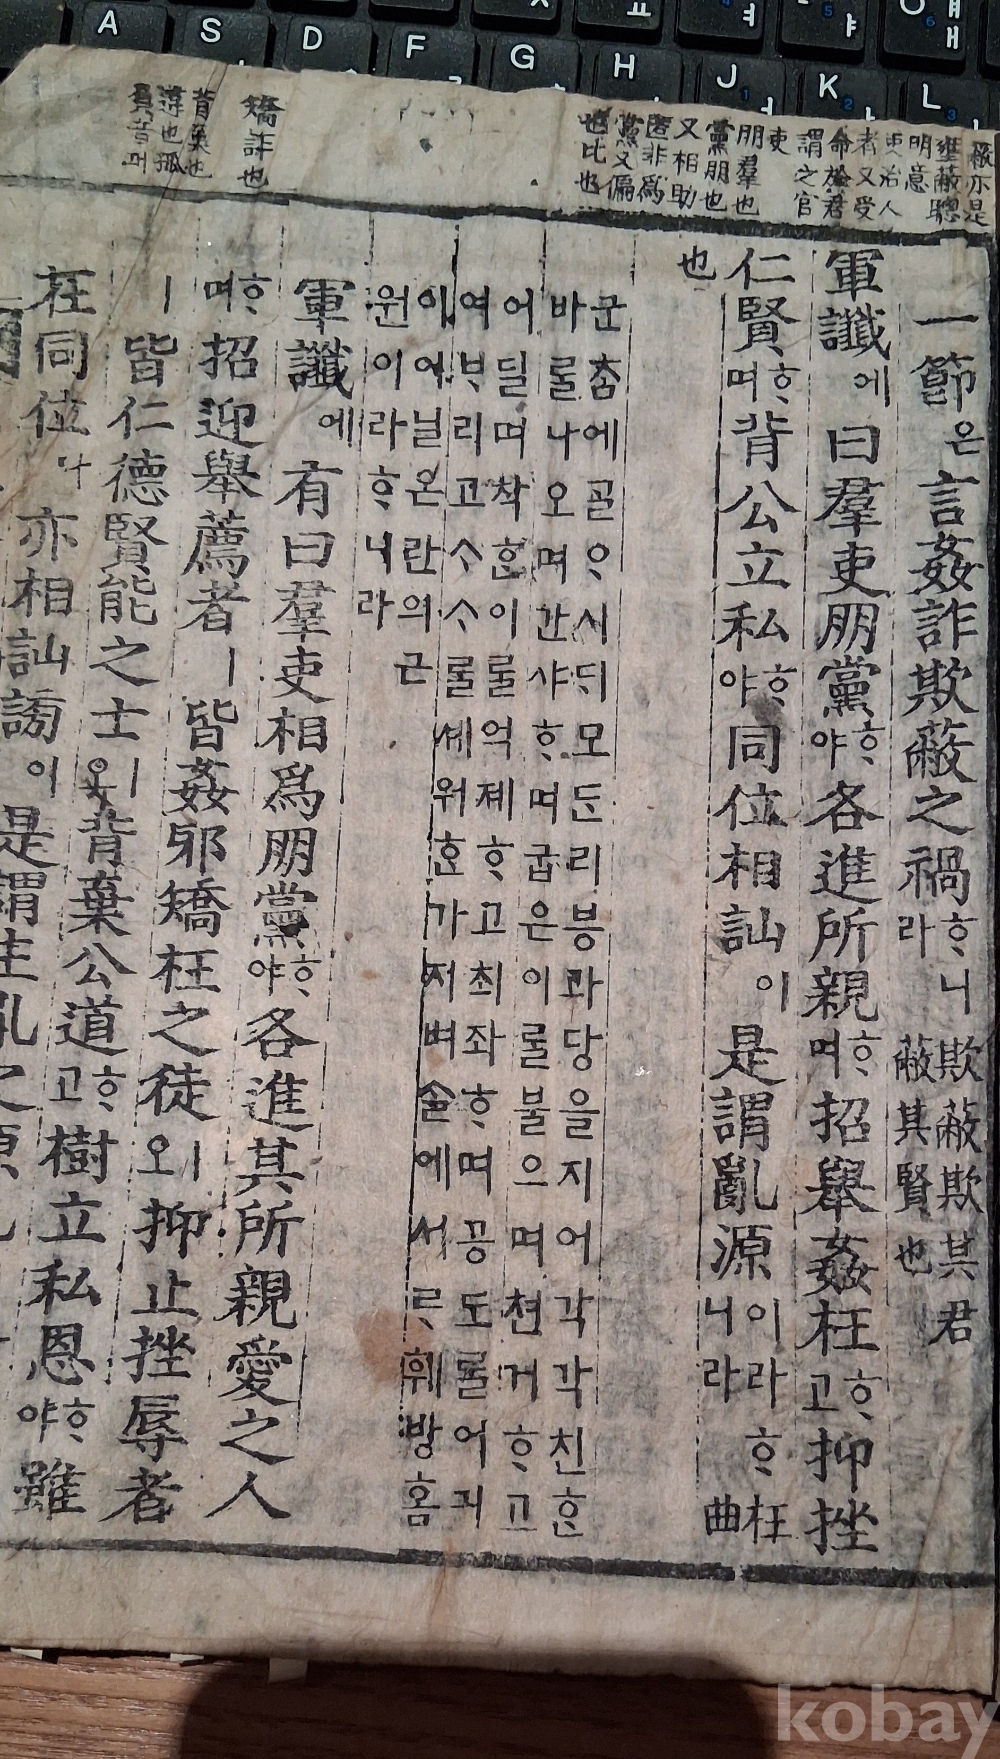 一節은言姦詐欺蔽之禍라ᄒᆞ니欺蔽欺其君蔽其賢也
軍讖에曰羣吏朋黨ᄒᆞ야各進所親ᄒᆞ며招舉姦枉ᄒᆞ고抑挫
仁賢ᄒᆞ며背公立私ᄒᆞ야同位相訕이是謂亂源이라ᄒᆞ니라枉曲
也
군참에ᄀᆞᆯᄋᆞ시되모든리븡과당을지어각각친ᄒᆞᆫ
바ᄅᆞᆯ나오며간샤ᄒᆞ며굽은이ᄅᆞᆯ불으며쳔거ᄒᆞ고
어딜며착ᄒᆞᆫ이ᄅᆞᆯ억졔ᄒᆞ고최좌ᄒᆞ며공도ᄅᆞᆯ어긔
여ᄇᆞ리고ᄉᆞᄉᆞᄅᆞᆯ셰워ᄒᆞᆫ가지벼ᄉᆞᆯ에서ᄅᆞ훼방홈
이이닐온란의근
원이라ᄒᆞ니라
軍讖에有曰羣吏相爲朋黨ᄒᆞ야各進其所親愛之人
ᄒᆞ며招迎舉薦者ㅣ皆姦邪矯枉之徒ㅣ오抑止挫辱者
ㅣ皆仁德賢能之士ㅣ오背棄公道ᄒᆞ고樹立私恩ᄒᆞ야雖
在同位나亦相訕謗이是謂生亂之源
蔽亦是
壅蔽聰
明意
吏治人
者又受
命於君
謂之官
吏
朋羣也
黨朋也
又相助
匿非爲
黨又偏
也比也
矯詐也
背棄也
違也孤
負音괴
A
S
D
F
G
H
J
K
L
ㅛ
ㅕ
ㅑ
ㅐ
ㅔ
kobay